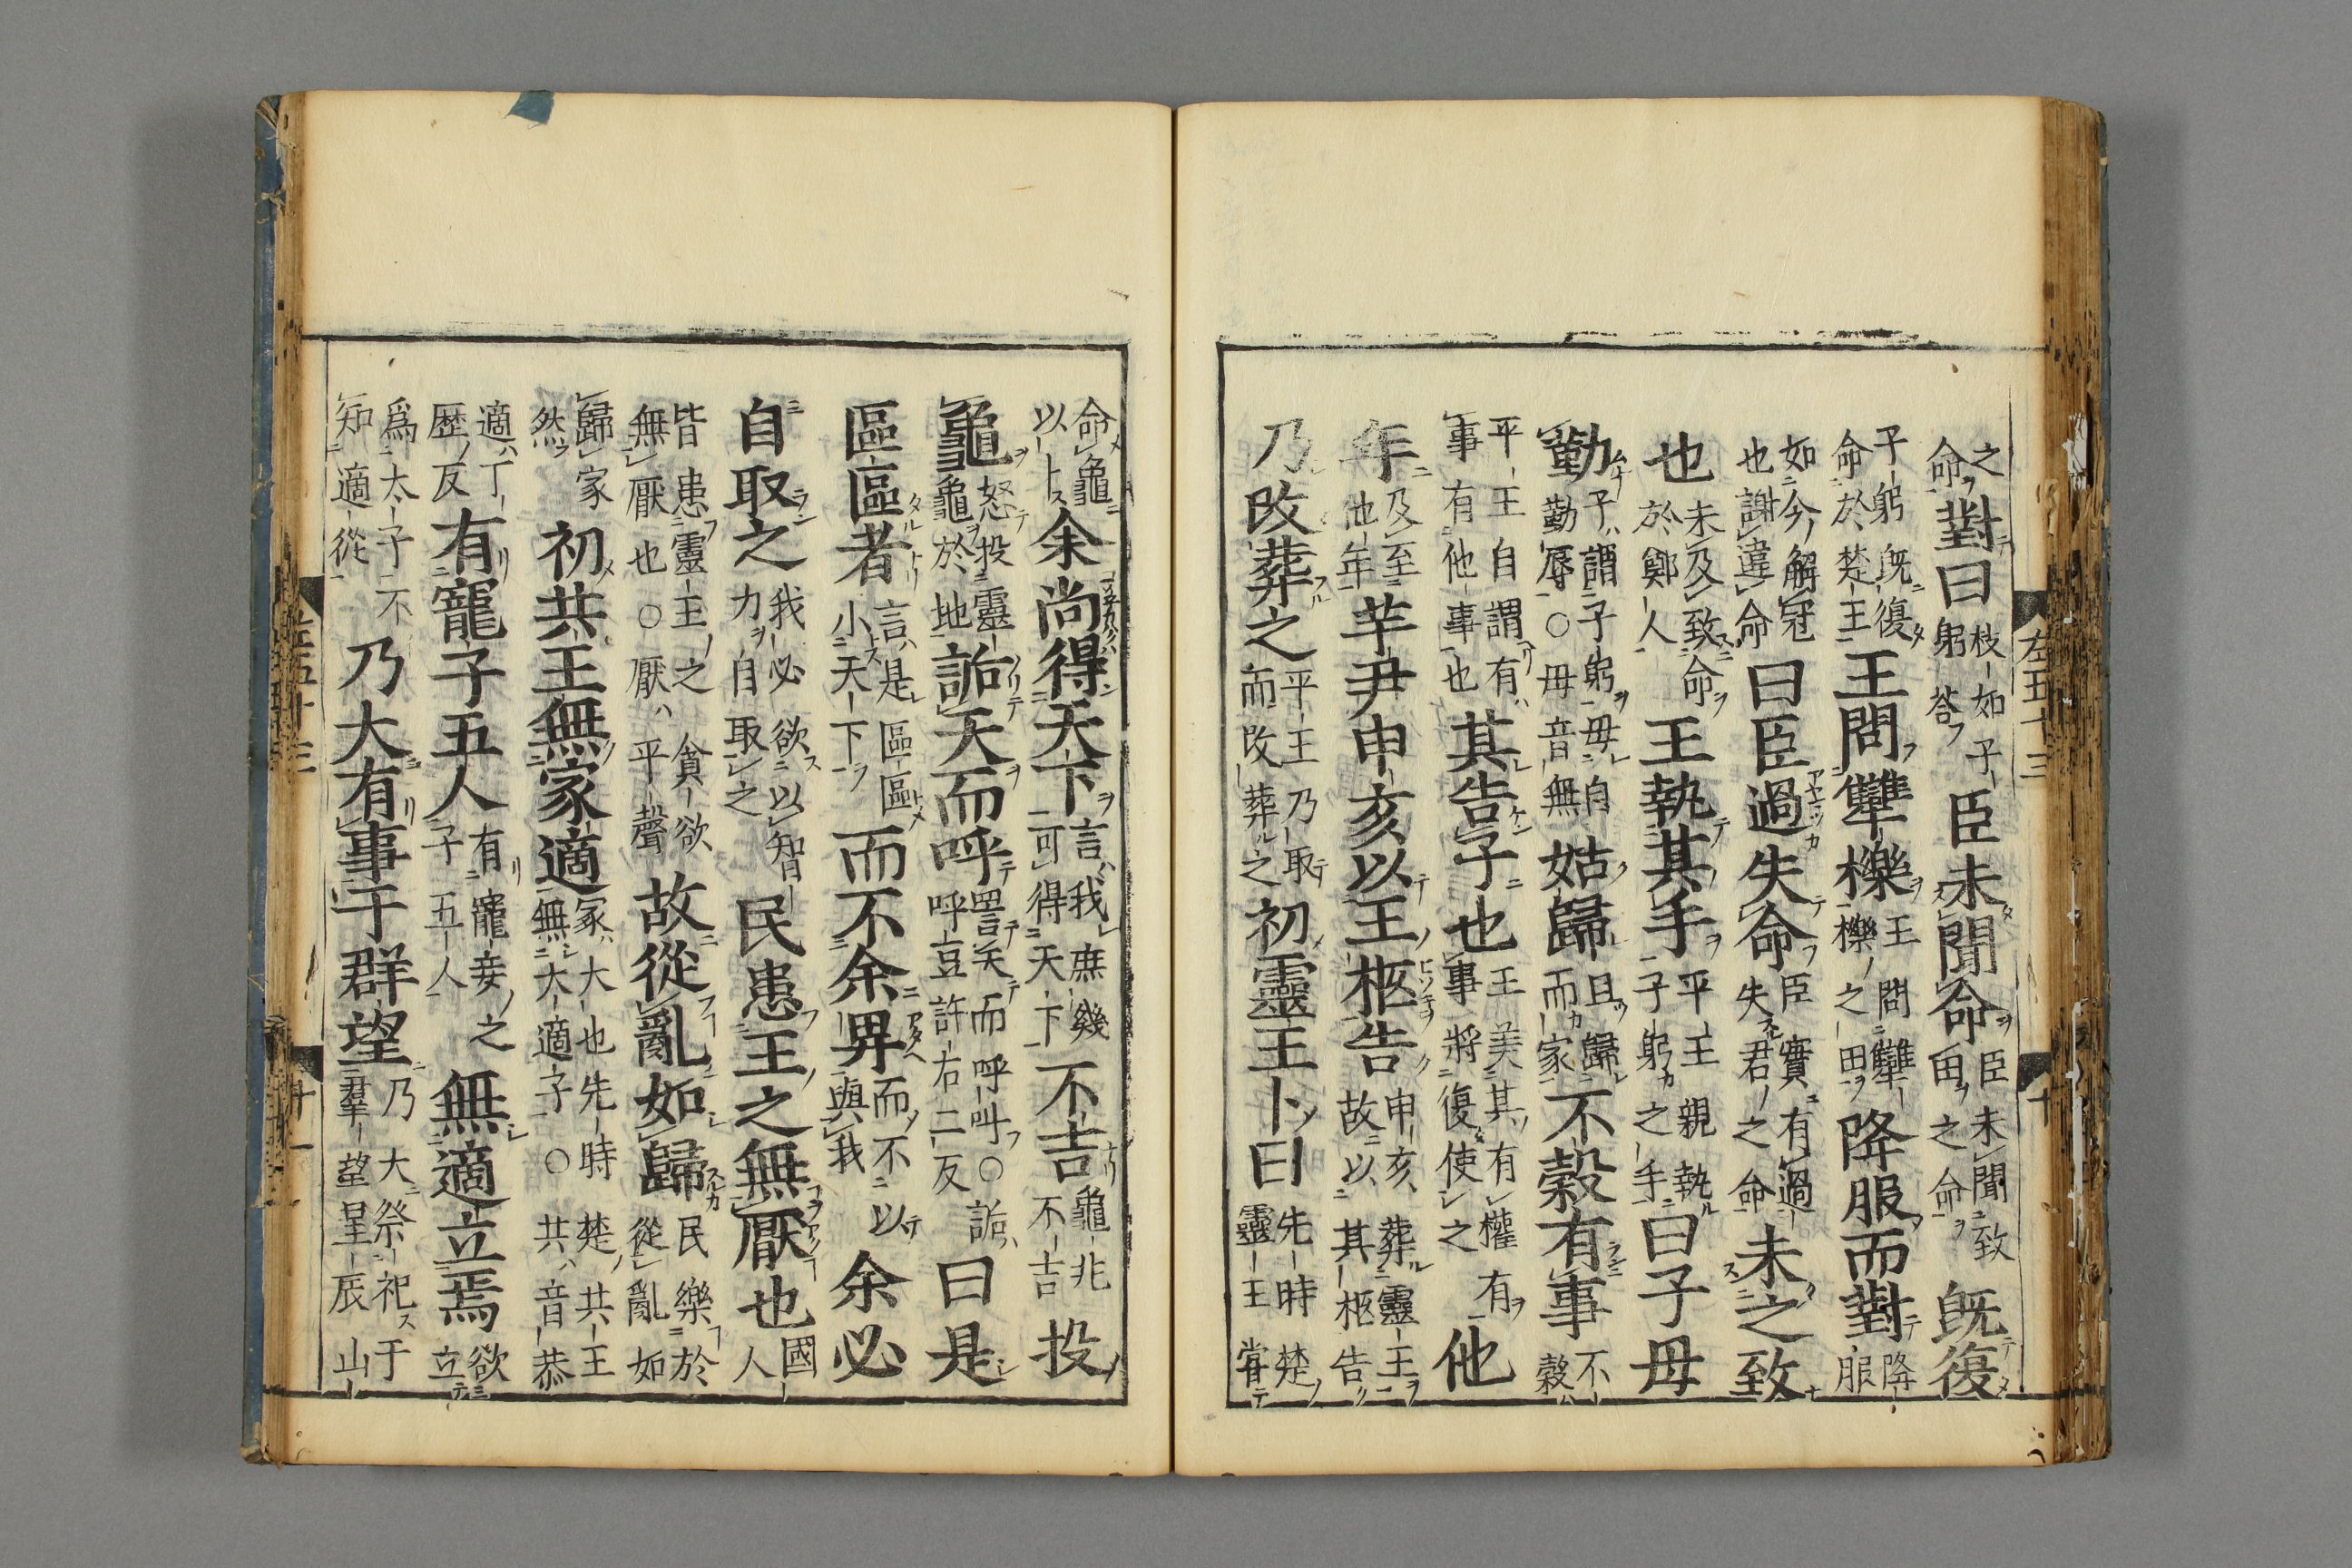 之命對曰枝如子躬荅臣未聞命臣未聞致田之命既復
子躬既復命於楚王王問犨櫟王問犨櫟之田降服而對降服
如今解冠也謝違命曰臣過失命臣實有過失君之命未之致
也未及致命於鄭人王執其手平王親執子躬之手曰子毋
勤子謂子躬毋自勤辱○毋音無姑歸且歸而家不穀有事不穀
平王自謂有事有他事也其告子也王美其有權有事將復使之他
年及至他年芋尹申亥以王柩告申亥葬靈王故以其柩告
乃改葬之平王乃取而改葬之初靈王卜曰先時楚靈王嘗
左五十三
十
命龜以卜余尚得天下言我庶幾可得天下不吉龜兆不吉投
龜怒投靈龜於地詬天而呼詈天而呼叫○詬呼豆許右二反曰是
區區者言是區區小天下而不余畀而不以與我余必
自取之我必欲以智力自取之民患王之無厭也國人
皆患靈王之貪欲無厭也○厭平聲故從亂如歸民樂於從亂如
歸家然初共王無冢適冢大也先時楚共王無大適子○共音恭
適丁歷反有寵子五人有寵妾之子五人無適立焉欲立
爲太子不知適從乃大有事于群望乃大祭祀于羣望星辰山
左五十三
十一